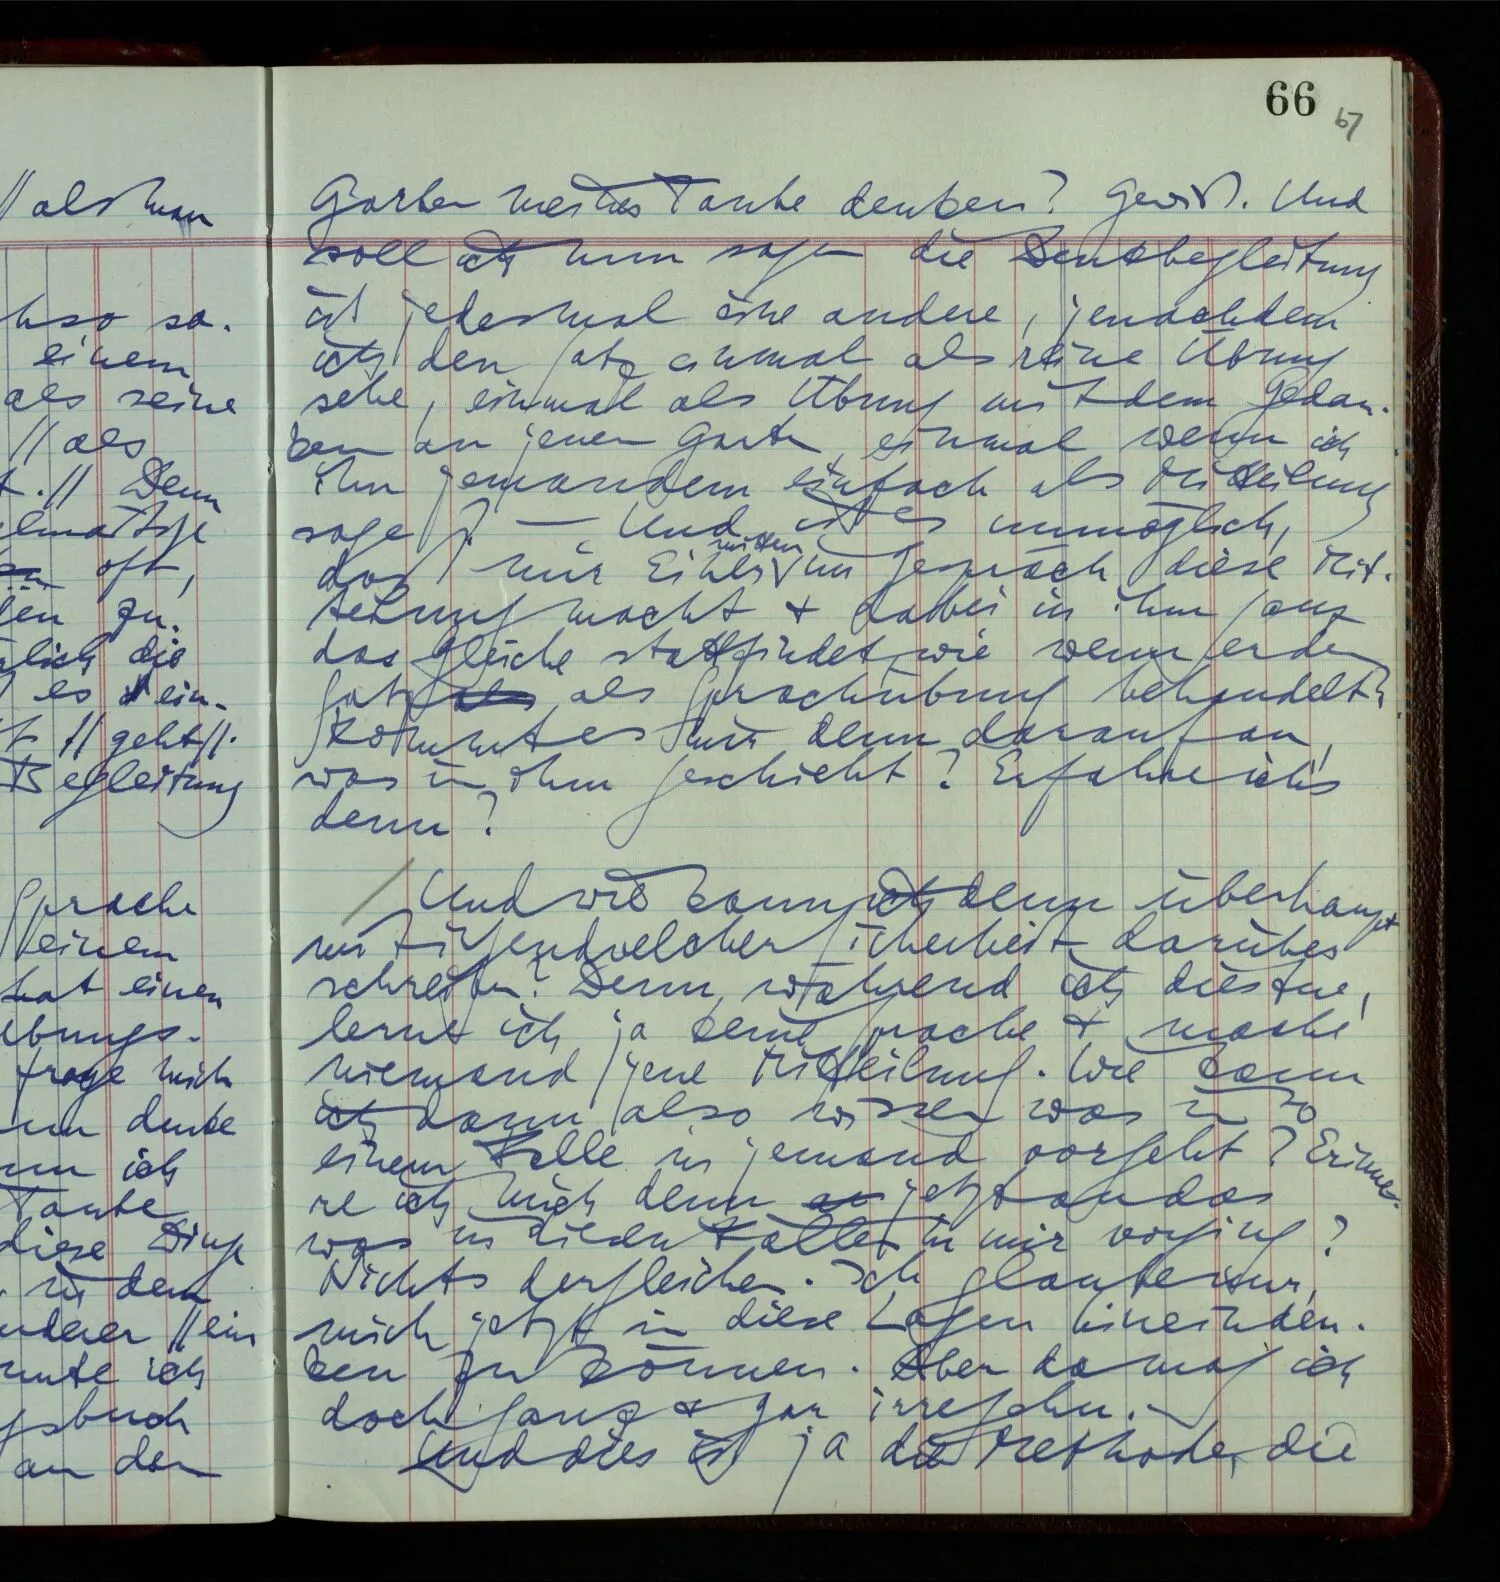 // als man
hso so.
einem
als seine
// als
t. // Denn
elmäßige
oft,
len zu.
glich die
es ein-
t // geht //.
Begleitung
Sprache
einem
hat einen
ebungs-
frage mich
nn denke
nn ich
Tante
diese Dinge
. in dem
nderer // ein
nnte ich
gsbuch
an den
66
67
Garten meines Tante denken? Gewiß. Und
soll ich nun sagen die Denkbegleitung
ist jedesmal eine andere, jenachdem
ich den Satz einmal als reine Übung
sehe, einmal als Übung mit dem Gedan-
ken an jenen Garten, einmal wenn ich
ihn jemandem einfach als Mitteilung
sage? — Und ist es unmöglich,
daß mir Einer mitten im Gespräch diese Mit-
teilung macht & dabei in ihm ganz
das Gleiche stattfindet, wie wenn er den
Satz als als Sprachübung behandelt?
Kommt es mir denn darauf an,
was in ihm geschieht? Erfahre ich's
denn?
/ Und wie kann ich denn überhaupt
mit irgendwelcher Sicherheit darüber
schreiben? Denn, während ich dies tue,
lerne ich ja keine Sprache & mache
niemand jene Mitteilung. Wie kann
ich dann also wissen was in so
einem Falle in jemand vorgeht? Erinne-
re ich mich denn an jetzt an das
was in diesen Fällen in mir vorging?
Nichts dergleichen. Ich glaube nur,
mich jetzt in diese Lagen hineinden-
ken zu können. Aber da mag ich
doch ganz & gar irregehn. —
Und dies ist ja die Methode, die